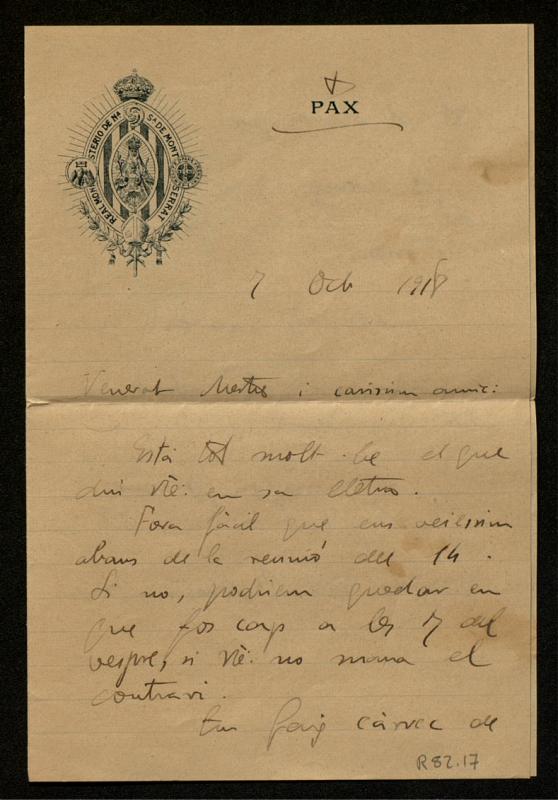 REAL MONASTERIO DE Nª Sª DE MONTSERRAT
PAX
7 Octb 1918
Venerat Mestre i caríssim amic:
Està tot molt be el que
diu Vtè: en sa lletra.
Fora fàcil que ens veiessim
abans de la reunió del 14.
Si no, podriem quedar en
que fos cap a les 7 del
vespre, si Vtè: no mana el
contrari.
Em faig càrrec de
R82.17